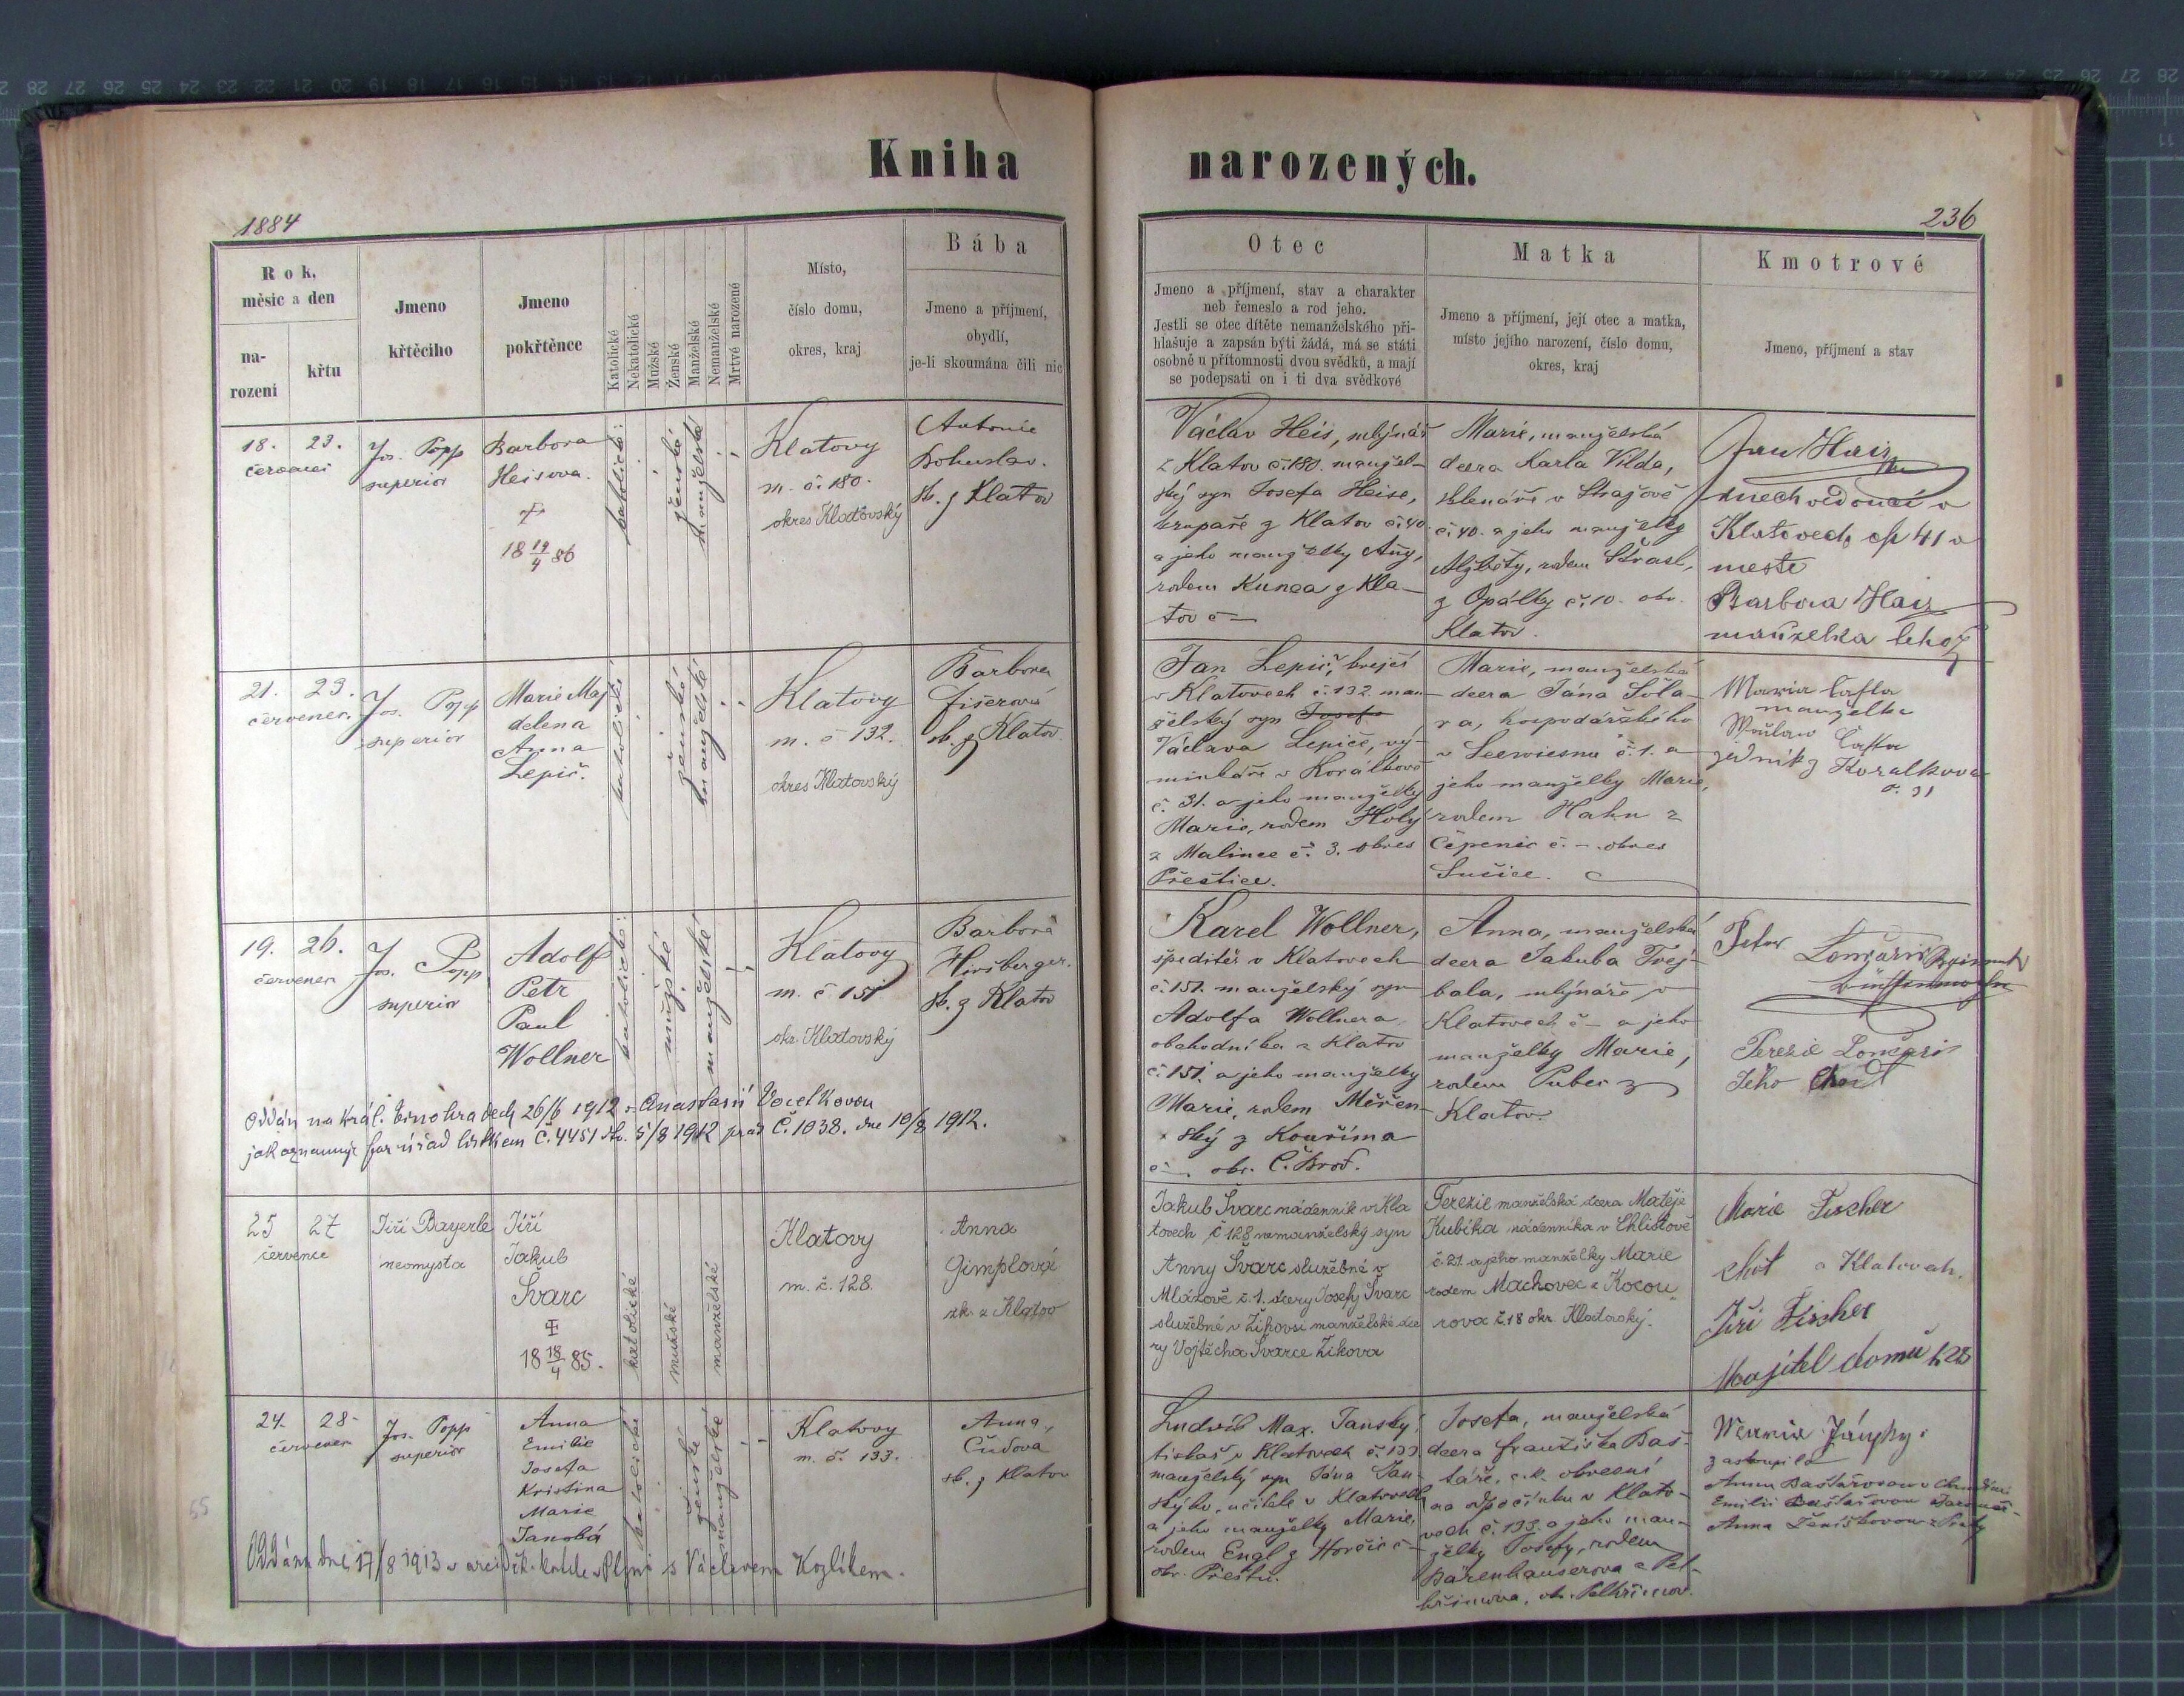 Kniha narozených.
1884
236
Rok, měsíc a den
narození
křtu
Jmeno křtěcího
Jmeno pokřtěnce
Katolické
Nekatolické
Mužské
Ženské
Manželské
Nemanželské
Mrtvé narozené
Místo,
číslo domu,
okres, kraj
Bába
Jmeno a příjmení,
obydlí,
je-li skoumána čili nic
Otec
Jmeno a příjmení, stav a charakter
neb řemeslo a rod jeho.
Jestli se otec dítěte nemanželského při-
hlašuje a zapsán býti žádá, má se státi
osobně u přítomnosti dvou svědků, a mají
se podepsati on i ti dva svědkové
Matka
Jmeno a příjmení, její otec a matka,
místo jejího narození, číslo domu,
okres, kraj
Kmotrové
Jmeno, příjmení a stav
18. 23.
července
Jos. Popp
superior
Barbora
Heisova.
18 19/4 86
katolické
ženské
manželské
Klatovy
m. č. 180.
okres Klatovský
Antonie
Bohuslav.
zk. z Klatov
Václav Heis, mlynář
z Klatov č. 180. manžel-
ský syn Josefa Heise,
krupaře z Klatov č. 40.
a jeho manželky Anny,
rodem Kunca z Kla-
tov č –
Marie, manželská
dcera Karla Vilda,
sklenáře v Strajově
č. 40. a jeho manželky
Alžběty, rodem
z Opálky č. 10. okr.
Klatov.
Jan Hais
v
Klatovech čp 41 v
městě
Barbora Hais
manželka téhož
21. 23.
červenec
Jos. Popp
superior
Marie Maj
delena
Anna
Lepič.
katolické
ženské
manželské
Klatovy
m. č 132.
okres Klatovský
Barbora
Fišerová
zk. z Klatov
Jan Lepič, krejčí
v Klatovech č. 132. man-
želský syn Josefa
Václava Lepiče, vý-
minkáře v Korálkově
č. 31. a jeho manželky
Marie, rodem Holý
z Malince č. 3. okres
Přeštice.
Marie, manželská
dcera Jána Šola-
ra, hospodářského
v č. 1. a
jeho manželky Marie,
rodem Hahn z
Čepenic č. –. okres
Sušice.
Maria Cafta
manželka
Waclaw Cafta
z Koralkova
č. 31
19. 26.
červenec
Jos. Popp
superior
Adolf
Petr
Paul
Wollner
katolické
mužské
manželské
Klatovy
m. č 151
okr. Klatovský
Barbora
Hirsberger.
zk. z Klatov
Karel Wollner,
špeditér v Klatovech
č. 151. manželský syn
Adolfa Wollnera
obchodníka z Klatov
č. 151. a jeho manželky
Marie, rodem Měřen-
ský z Kouřima
č – okr. Č. Brod.
Anna, manželská
dcera Jakuba Tvej-
bala, mlynáře v
Klatovech č – a jeho
manželky Marie,
rodem Pubec z
Klatov.
Peter
Terezie
Jeho choť
Oddán na Král. Vinohradech 26/6 1912 s Anastasií Vocelkovou
jak oznamuje far. úřad lístkem č. 4451 dto. 5/8 1912 prae č. 1038. dne 10/8 1912.
25 27
července
Jiří Bayerle
neomysta
Jiří
Jakub
Švarc
18 18/4 85.
katolické
mužské
manželské
Klatovy
m. č. 128.
Anna
Gimplová
zk. z Klatov
Jakub Švarc nádenník v Kla
tovech č 128 nemanželský syn
Anny Švarc služebné v
Mlázově č. 1. dcery Josefy Švarc
služebné v Žikovsi manželské dce
ry Vojtěcha Švarce Žikova
Terezie manželská dcera Matěje
Kubíka nádenníka v Chlistově
č. 21. a jeho manželky Marie
rodem Machovec z Kocou
rova č. 18 okr. Klatovský.
Marie Fischer
choť v Klatovech.
Jiří Fischer
Majitel domu
24. 28.
červenec
Jos. Popp
superior
Anna
Emilie
Josefa
Kristina
Marie
Janská
katolické
ženské
manželské
Klatovy
m. č. 133.
Anna
Čudová
zk. z Klatov
Ludvík Max. Janský,
tiskař v Klatovech č. 133
manželský syn Jána Jan-
ského, učitele v Klatovech
a jeho manželky Marie,
rodem Engl z Horčic č –
okr. Přeštic.
Josefa, manželská
dcera Františka Baš-
táře, c. k.
na odpočinku v Klato-
vech č. 133. a jeho man-
želky Josefy, rodem
Bärenhauserova z Pel-
hřimova, okr. Pelhřimov.
Maria Jánsky
zastoupila
Annu Baštářovou v Chrudimi
Emilii Baštářovou
Anna Ženíškovou z Prahy
Oddána dne 17/8 1913 v arciděk. kostele v Plzni s Václavem Kozlíkem.